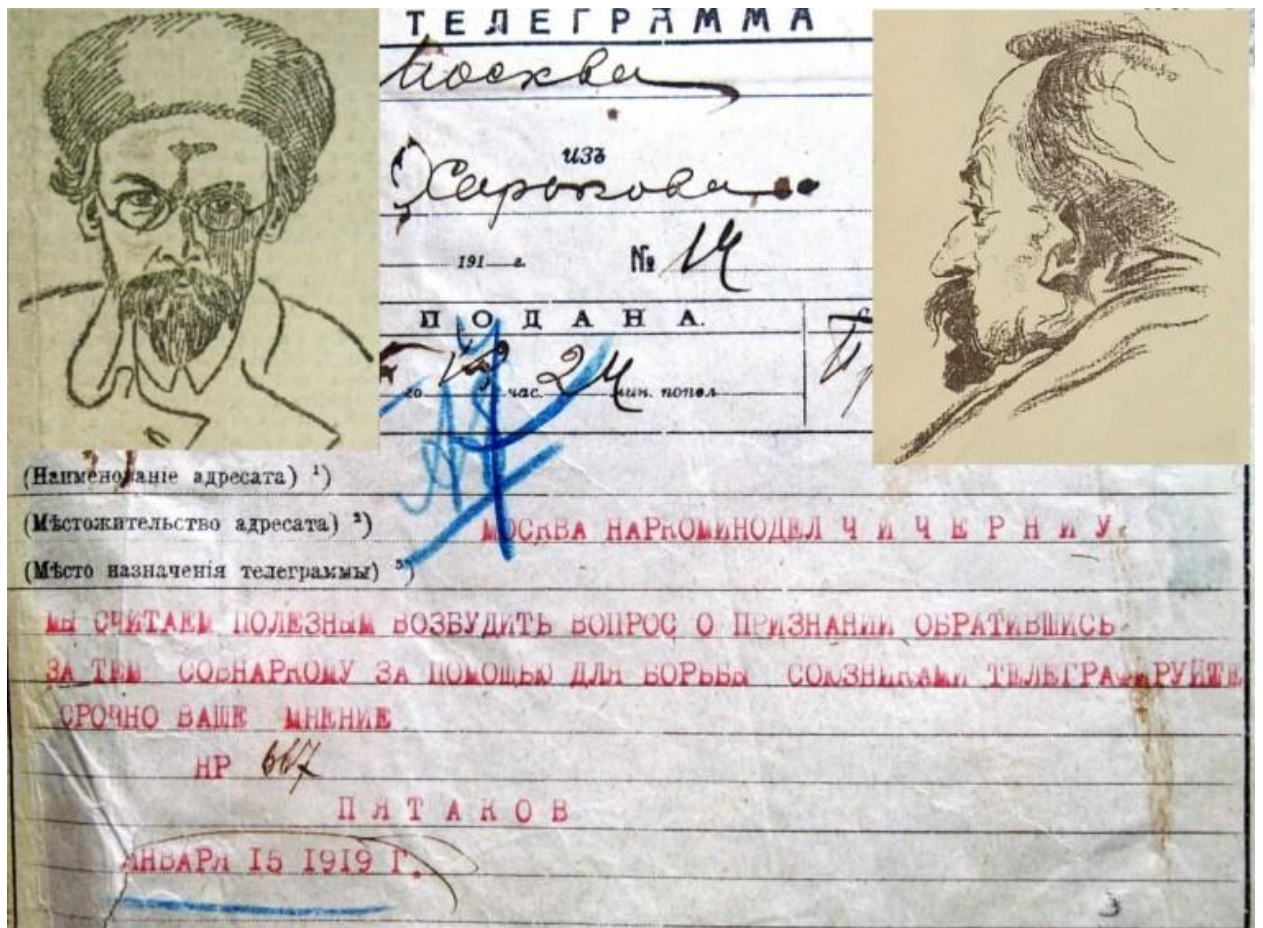 ТЕЛЕГРАММА
Москва
изъ
Харькова
191 г. № 14
ПОДАНА.
го час. 24 мин. попол.
(Наименованіе адресата) ¹)
(Мѣстожительство адресата) ²) МОСКВА НАРКОМИНОДЕЛ Ч И Ч Е Р Н И У
(Мѣсто назначенія телеграммы) ³)
МЫ СЧИТАЕМ ПОЛЕЗНЫМ ВОЗБУДИТЬ ВОПРОС О ПРИЗНАНИИ ОБРАТИВШИСЬ
ЗА ТЕМ СОВНАРКОМУ ЗА ПОМОЩЬЮ ДЛЯ БОРЬБЫ СОЮЗНИКАМИ ТЕЛЕГРАФИРУЙТЕ
СРОЧНО ВАШЕ МНЕНИЕ
НР
П Я Т А К О В
ЯНВАРЯ 15 1919 Г.